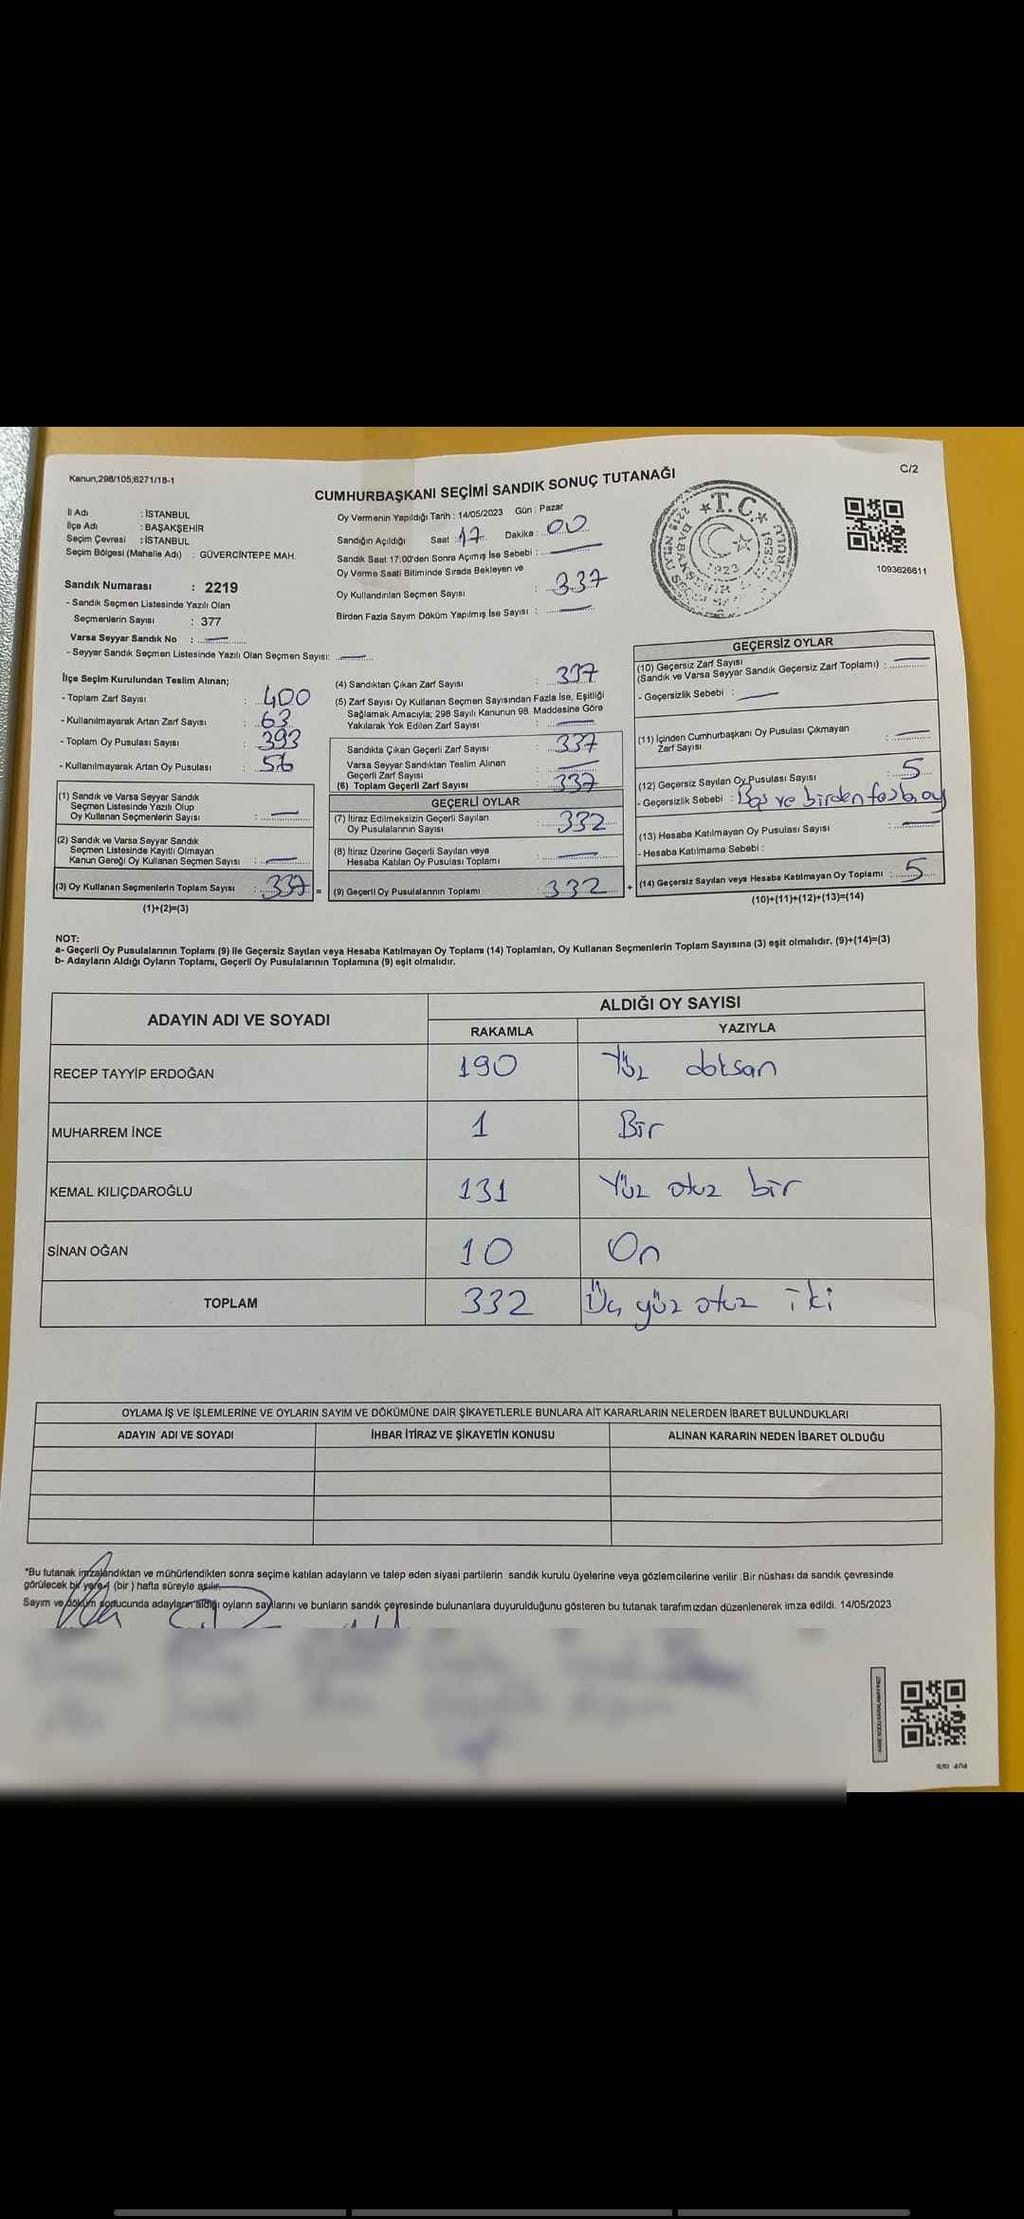 Kanun;298/105;6271/18-1
C/2
CUMHURBAŞKANI SEÇİMİ SANDIK SONUÇ TUTANAĞI
İl Adı : İSTANBUL
İlçe Adı : BAŞAKŞEHİR
Seçim Çevresi : İSTANBUL
Seçim Bölgesi (Mahalle Adı) : GÜVERCİNTEPE MAH.
Sandık Numarası : 2219
- Sandık Seçmen Listesinde Yazılı Olan
Seçmenlerin Sayısı : 377
Varsa Seyyar Sandık No :
- Seyyar Sandık Seçmen Listesinde Yazılı Olan Seçmen Sayısı:
Oy Vermenin Yapıldığı Tarih : 14/05/2023 Gün : Pazar
Sandığın Açıldığı Saat : 17 Dakika : 00
Sandık Saat 17:00'den Sonra Açımış İse Sebebi :
Oy Verme Saati Bitiminde Sırada Bekleyen ve
Oy Kullandırılan Seçmen Sayısı : 337
Birden Fazla Sayım Döküm Yapılmış İse Sayısı :
T.C.
1923
1093626611
İlçe Seçim Kurulundan Teslim Alınan;
- Toplam Zarf Sayısı : 400
- Kullanılmayarak Artan Zarf Sayısı : 63
- Toplam Oy Pusulası Sayısı : 393
- Kullanılmayarak Artan Oy Pusulası : 56
(1) Sandık ve Varsa Seyyar Sandık
Seçmen Listesinde Yazılı Olup
Oy Kullanan Seçmenlerin Sayısı :
(2) Sandık ve Varsa Seyyar Sandık
Seçmen Listesinde Kayıtlı Olmayan
Kanun Gereği Oy Kullanan Seçmen Sayısı :
(3) Oy Kullanan Seçmenlerin Toplam Sayısı : 337 =
(1)+(2)=(3)
(4) Sandıktan Çıkan Zarf Sayısı : 337
(5) Zarf Sayısı Oy Kullanan Seçmen Sayısından Fazla İse, Eşitliği
Sağlamak Amacıyla; 298 Sayılı Kanunun 98. Maddesine Göre
Yakılarak Yok Edilen Zarf Sayısı :
Sandıkta Çıkan Geçerli Zarf Sayısı : 337
Varsa Seyyar Sandıktan Teslim Alınan
Geçerli Zarf Sayısı :
(6) Toplam Geçerli Zarf Sayısı : 337
GEÇERLİ OYLAR
(7) İtiraz Edilmeksizin Geçerli Sayılan
Oy Pusulalarının Sayısı : 332
(8) İtiraz Üzerine Geçerli Sayılan veya
Hesaba Katılan Oy Pusulası Toplamı :
(9) Geçerli Oy Pusulalarının Toplamı : 332 +
GEÇERSİZ OYLAR
(10) Geçersiz Zarf Sayısı
(Sandık ve Varsa Seyyar Sandık Geçersiz Zarf Toplamı) :
- Geçersizlik Sebebi :
(11) İçinden Cumhurbaşkanı Oy Pusulası Çıkmayan
Zarf Sayısı :
(12) Geçersiz Sayılan Oy Pusulası Sayısı : 5
- Geçersizlik Sebebi : Boş ve birden fazla oy
(13) Hesaba Katılmayan Oy Pusulası Sayısı :
- Hesaba Katılmama Sebebi :
(14) Geçersiz Sayılan veya Hesaba Katılmayan Oy Toplamı : 5
(10)+(11)+(12)+(13)=(14)
NOT:
a- Geçerli Oy Pusulalarının Toplamı (9) ile Geçersiz Sayılan veya Hesaba Katılmayan Oy Toplamı (14) Toplamları, Oy Kullanan Seçmenlerin Toplam Sayısına (3) eşit olmalıdır. (9)+(14)=(3)
b- Adayların Aldığı Oyların Toplamı, Geçerli Oy Pusulalarının Toplamına (9) eşit olmalıdır.
ADAYIN ADI VE SOYADI
ALDIĞI OY SAYISI
RAKAMLA YAZIYLA
RECEP TAYYİP ERDOĞAN 190 Yüz doksan
MUHARREM İNCE 1 Bir
KEMAL KILIÇDAROĞLU 131 Yüz otuz bir
SİNAN OĞAN 10 On
TOPLAM 332 Üç yüz otuz iki
OYLAMA İŞ VE İŞLEMLERİNE VE OYLARIN SAYIM VE DÖKÜMÜNE DAİR ŞİKAYETLERLE BUNLARA AİT KARARLARIN NELERDEN İBARET BULUNDUKLARI
ADAYIN ADI VE SOYADI İHBAR İTİRAZ VE ŞİKAYETİN KONUSU ALINAN KARARIN NEDEN İBARET OLDUĞU
*Bu tutanak imzalandıktan ve mühürlendikten sonra seçime katılan adayların ve talep eden siyasi partilerin sandık kurulu üyelerine veya gözlemcilerine verilir .Bir nüshası da sandık çevresinde
görülecek bir yere 1 (bir ) hafta süreyle asılır.
Sayım ve döküm sonucunda adayların aldığı oyların sayılarını ve bunların sandık çevresinde bulunanlara duyurulduğunu gösteren bu tutanak tarafımızdan düzenlenerek imza edildi. 14/05/2023